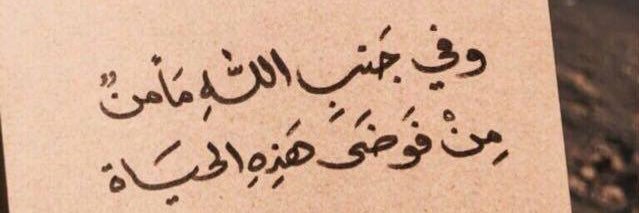 وفي جَنبِ اللَّهِ مَأمنٌ
مِنْ فَوضَىَ هَذِهِ الحيَاة